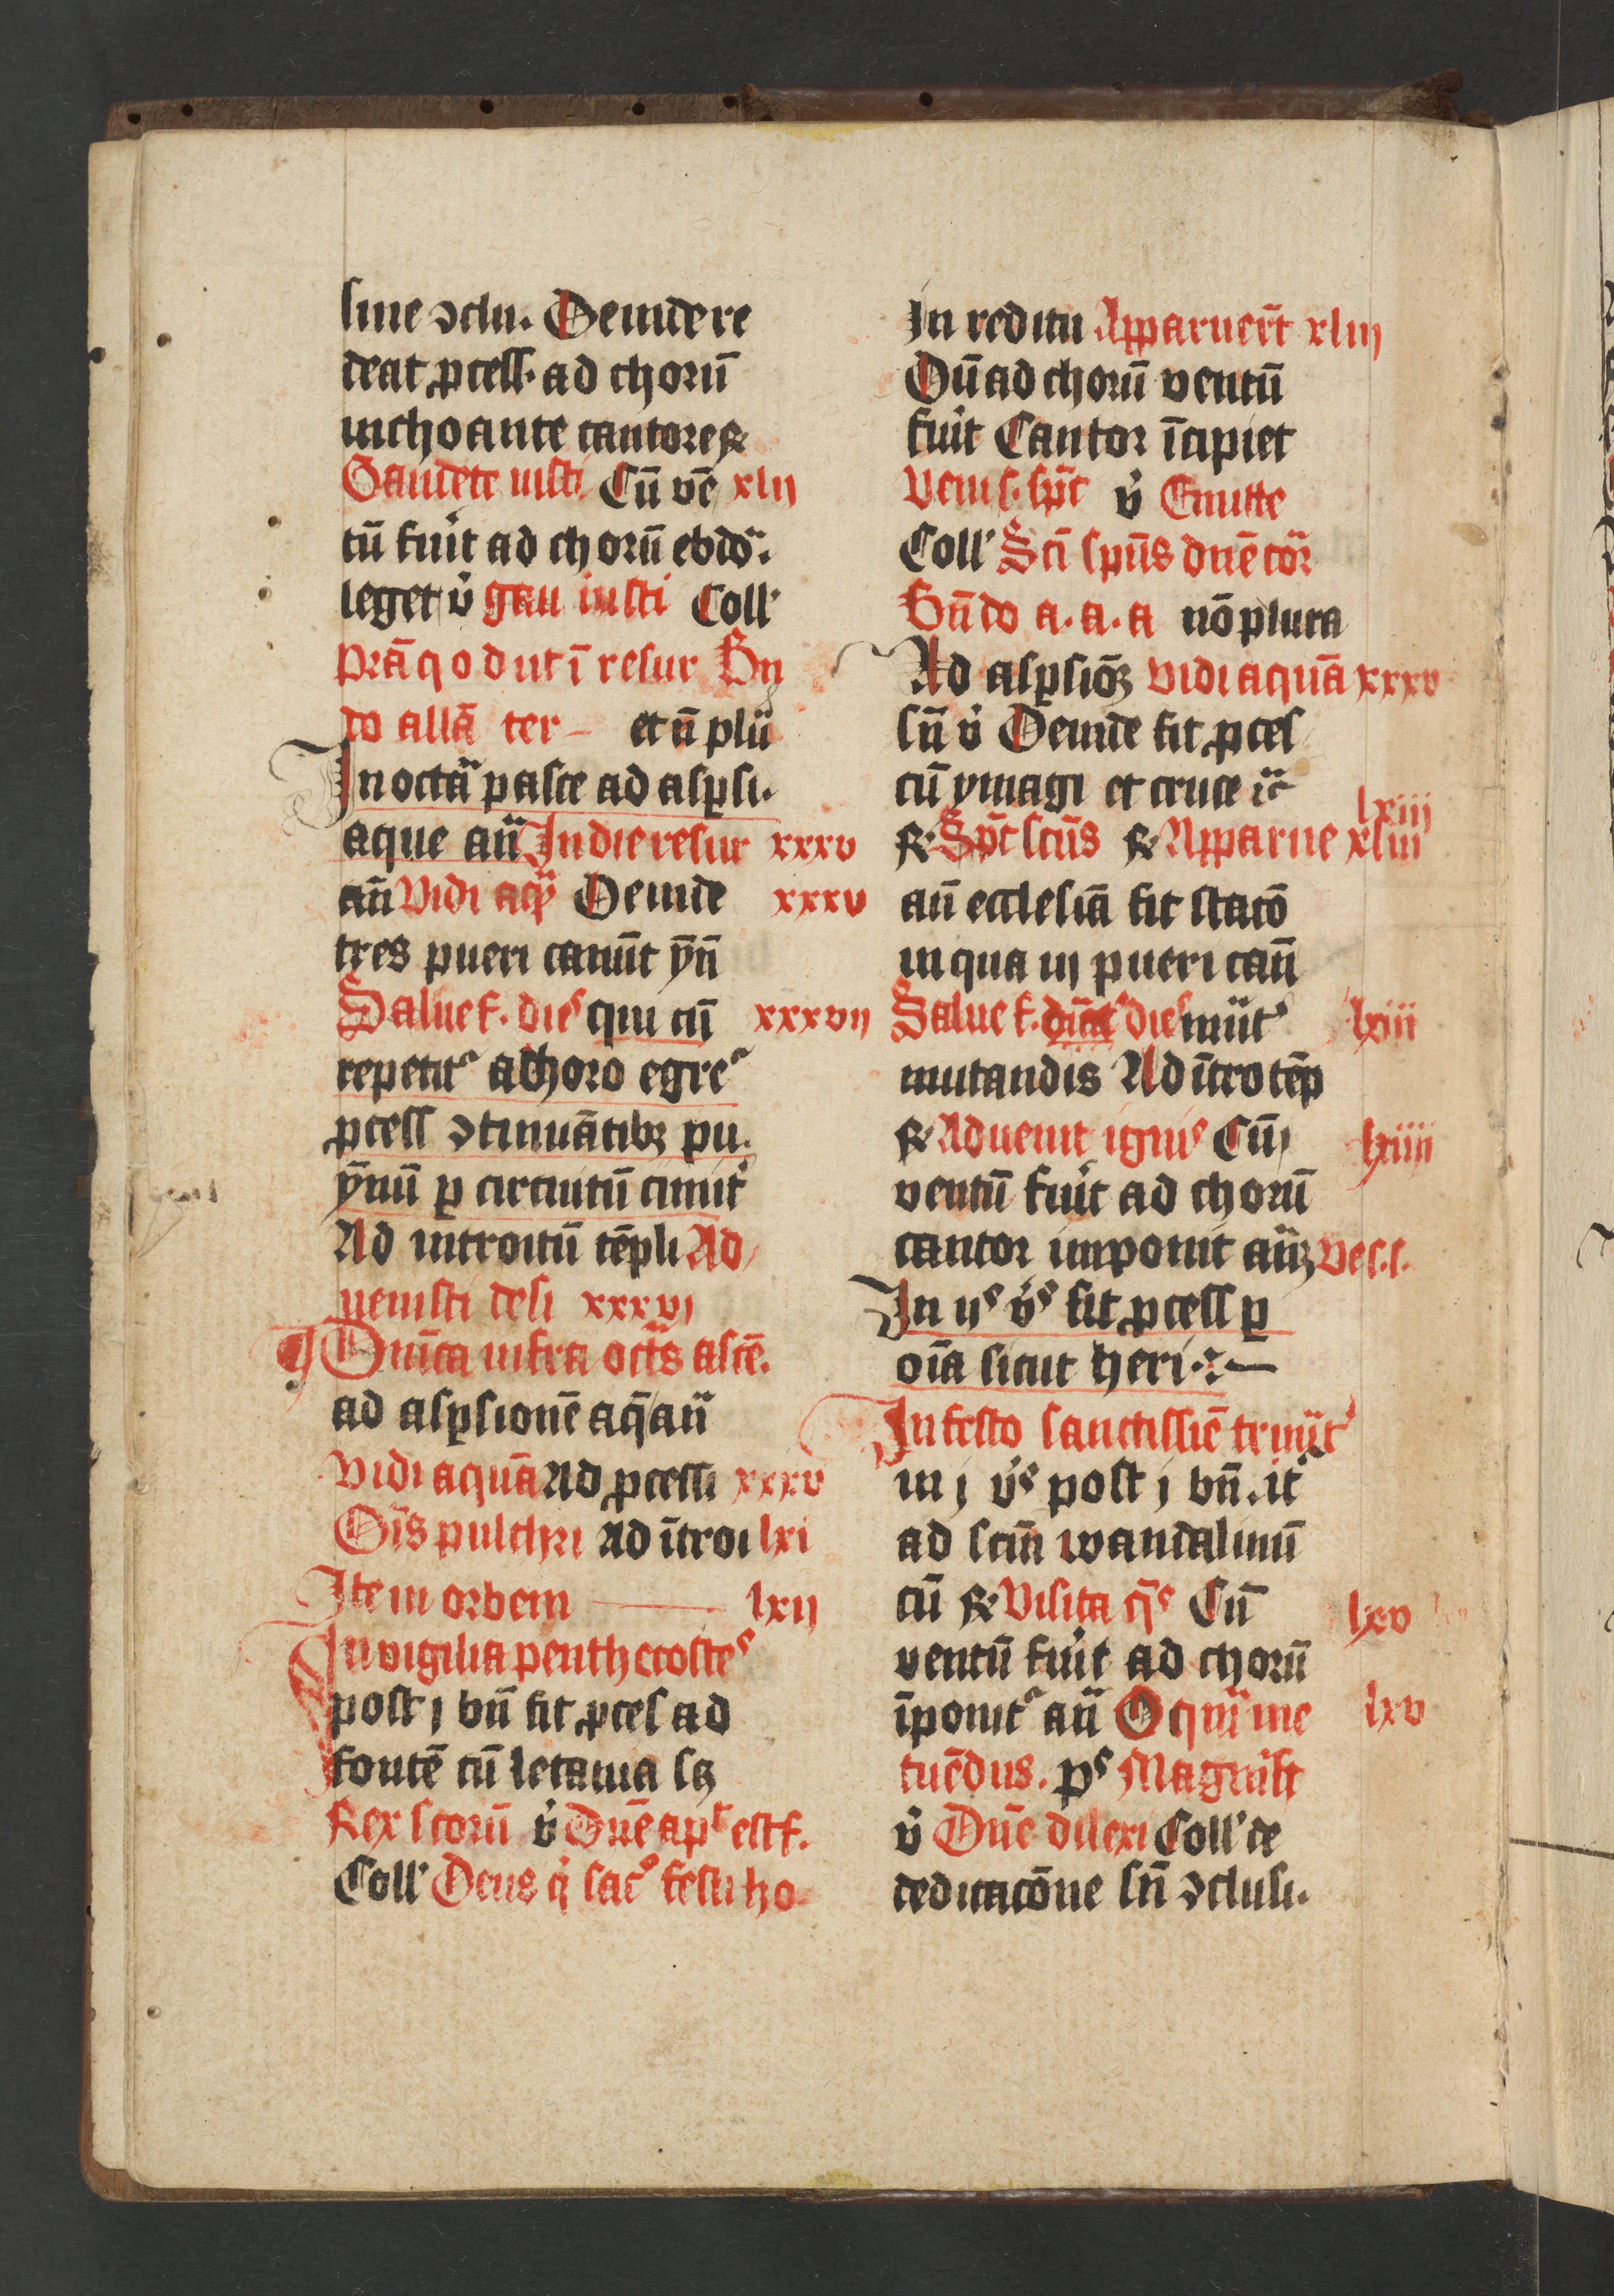 sine ↄclu. Deinde re
deat ꝓcess. ad chorū
inchoante cantore ꝶ
Gaudete iusti Cū vē xlij
tū fuit ad chorū ebdo.
leget v̓ gau iusti Coll'
Prā q o d ut ī resur Bn
do allā ter et n̄ plu
In octā pasce ad asꝑsi.
aque an̄ In die resur xxxv
an̄ Vidi aq Deinde xxxv
tres pueri canūt yn̄
Salue f. dies qui cū xxxvij
repetit᷑ a choro egre᷑
ꝓcess ↄtinuātibꝫ pu.
ynū ꝑ circuitū cimit᷑
Ad introitū tēpli Ad
uenisti desi xxxvj
Dn̄ica infra octās ascē.
ad asꝑsionē aq̄ an̄
Vidi aquā Ad ꝓcessi xxxv
Oīs pulchri ad ītroi lxi
Ite in orbem lxij
In vigilia penthecostes
post j bn̄ fit ꝓces ad
fontē cū letania sꝫ
Rex scorū v̓ Dn̄e apt est f.
Coll' Deus q̓ sac᷑ festi ho
In reditu Apparuert̄ xliij
Dū ad chorū ventū
fuit Cantor īcipiet
Veni s. sp̄c v̓ Emitte
Coll' Sc̄i sp̄us dn̄e cor
Bn̄do a. a. a nō plura
Ad asꝑsiōꝫ vidi aquā xxxv
sn̄ v̓ Deinde fit ꝓces
cū ymagi et cruce ic̄
lxiij
ꝶ Sp̄c scūs ꝶ Apparue xliij
an̄ ecclesiā fit statō
in qua iij pueri can̄
Salue f. dies mūt᷑ lxiii
mutandis Ad ītro tēp
ꝶ Aduenit ignis Cū lxiiii
ventū fuit ad chorū
cantor imponit an̄ꝫ Ve s. s.
In ijs v̓s fit ꝓcess ꝑ
oīa sicut heri
In festo sanctissīe trinit᷑
in j v̓s post j bn̄. it᷑
ad scīn wandalinū
cū ꝶ Visita q̄s Cū lxv
ventū fuit ad chorū
īponit᷑ an̄ O quī me lxv
tuēdus. ps Magnīst
v̓ Dn̄e dilexi Coll' de
dedicacōne sn̄ ↄclusi.